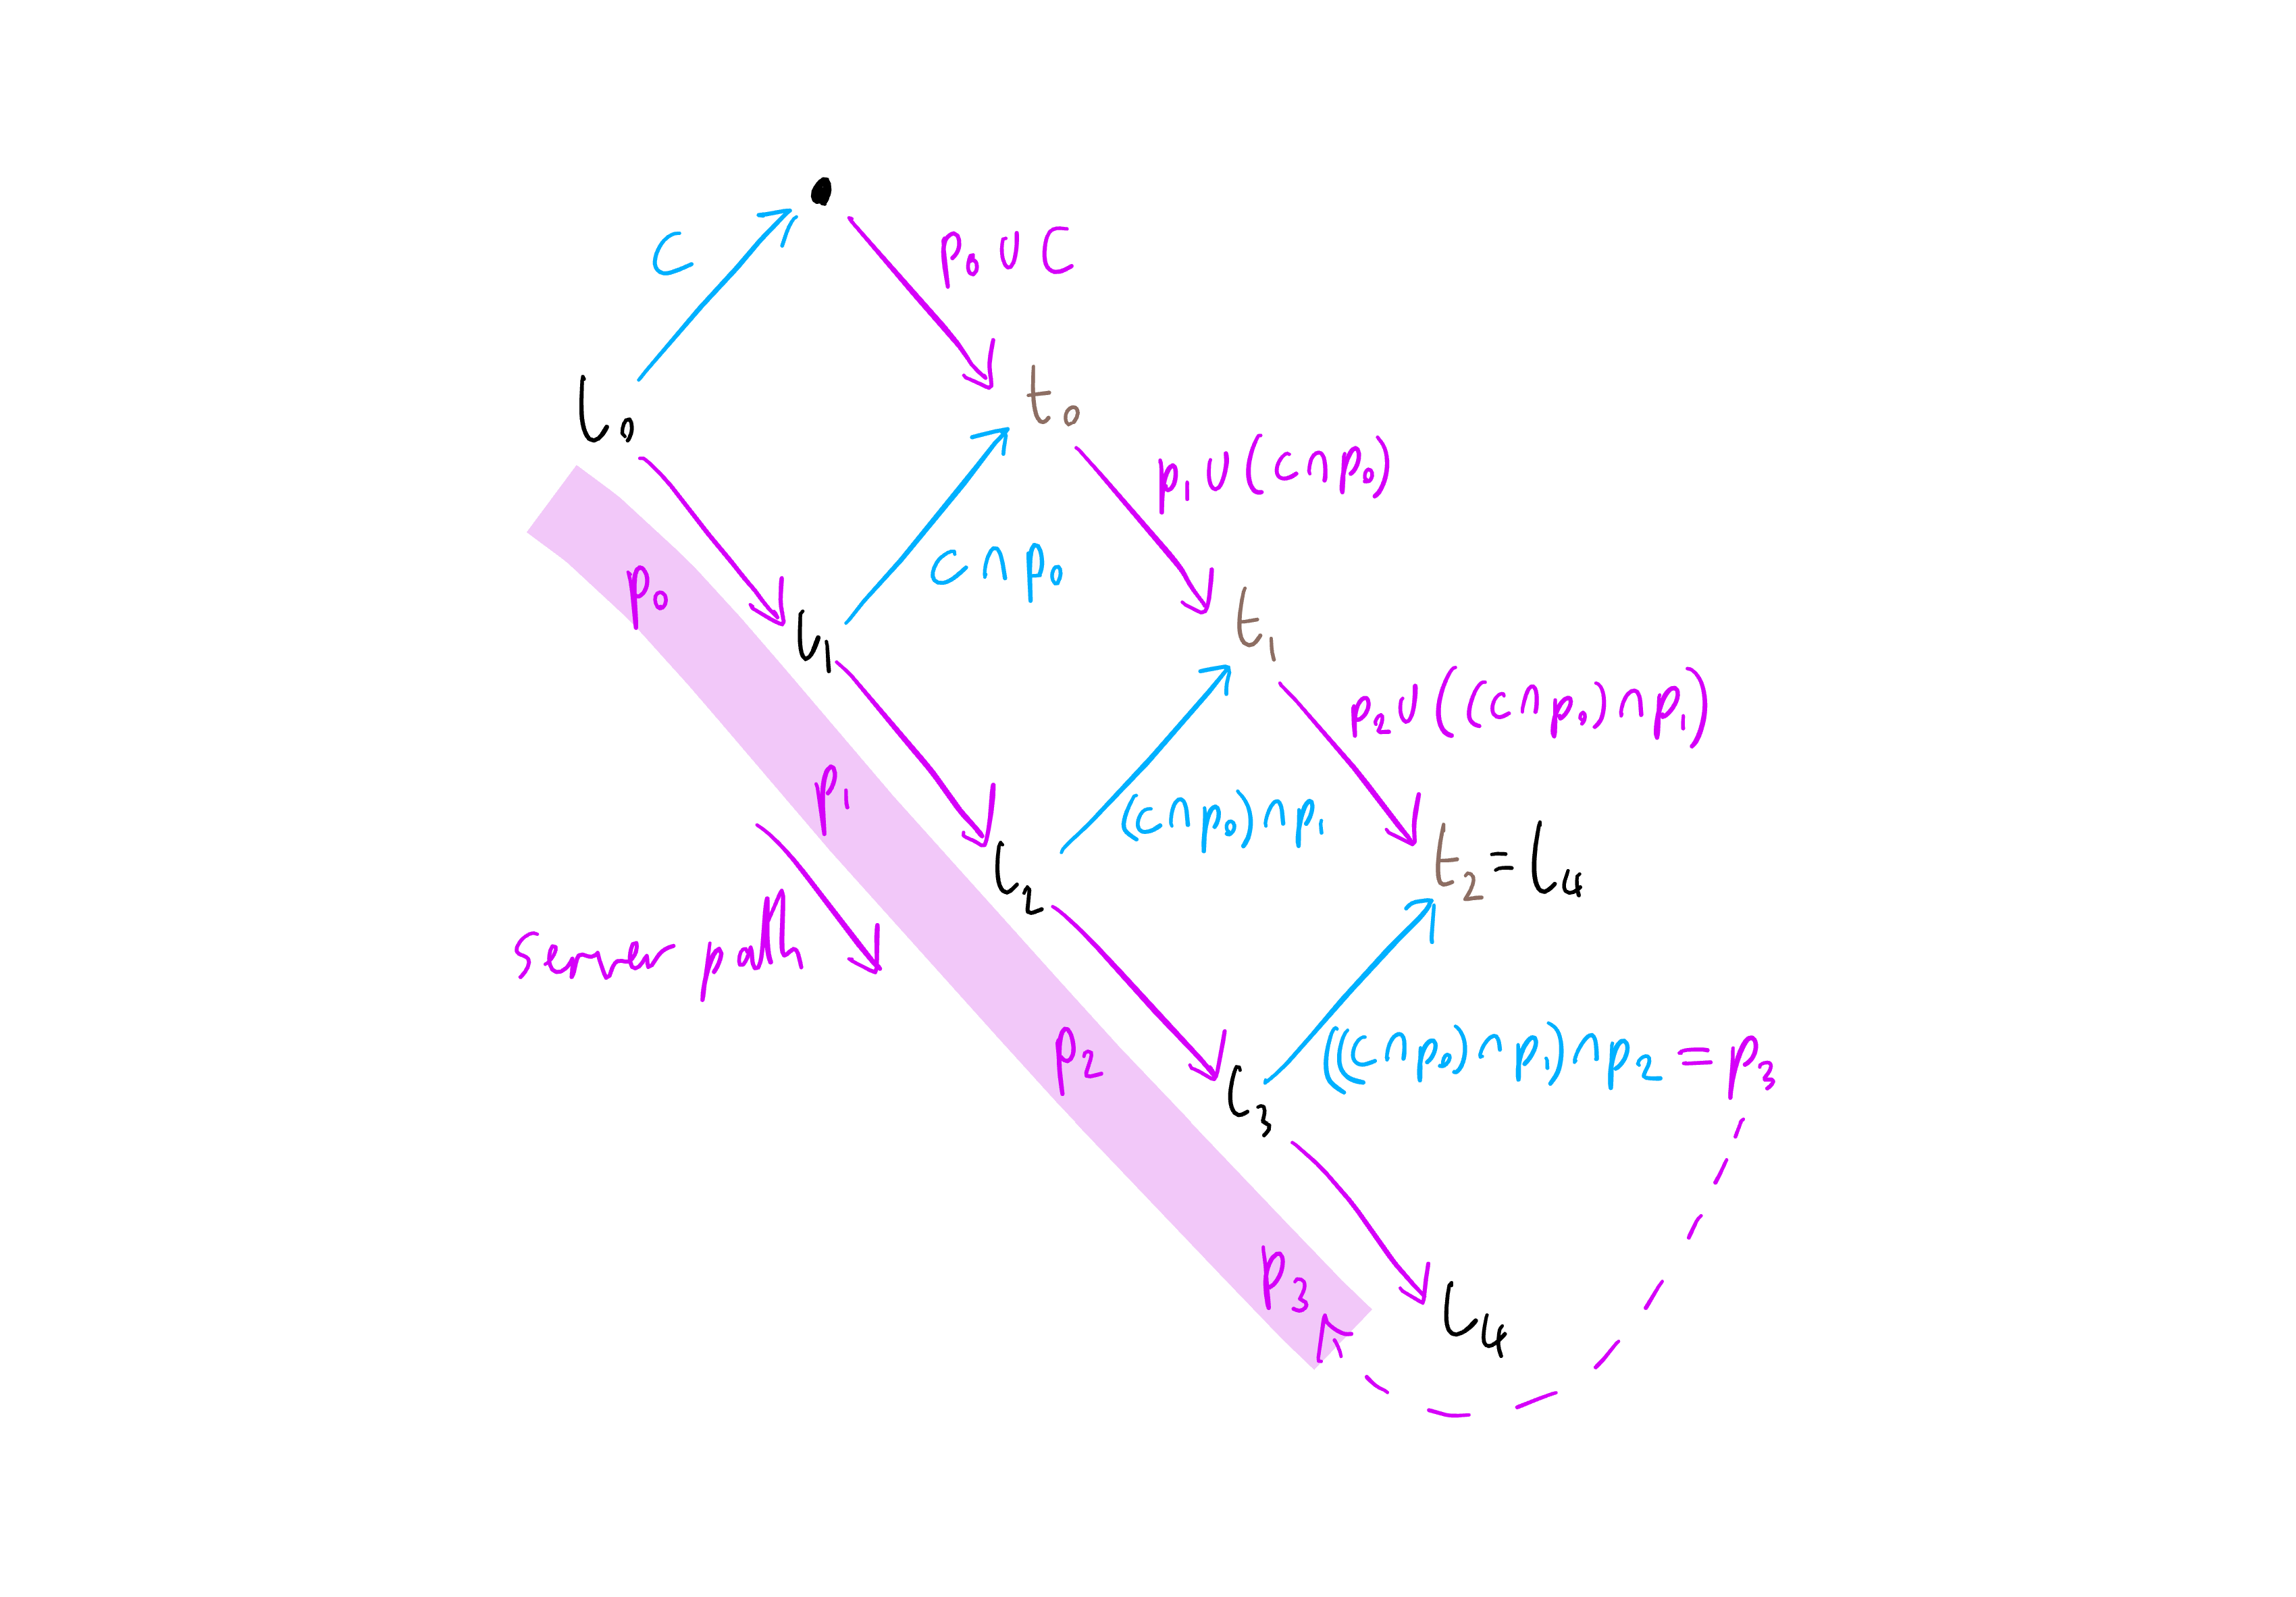 C
p₀ ∪ C
l₀
t₀
p₁ ∪ (c ∩ p₀)
p₀
c ∩ p₀
l₁
t₁
p₂ ∪ ((c ∩ p₀) ∩ p₁)
p₁
(c ∩ p₀) ∩ p₁
l₂
t₂ = l₄
server path
p₂
((c ∩ p₀) ∩ p₁) ∩ p₂ = p₃
l₃
p₃
l₄